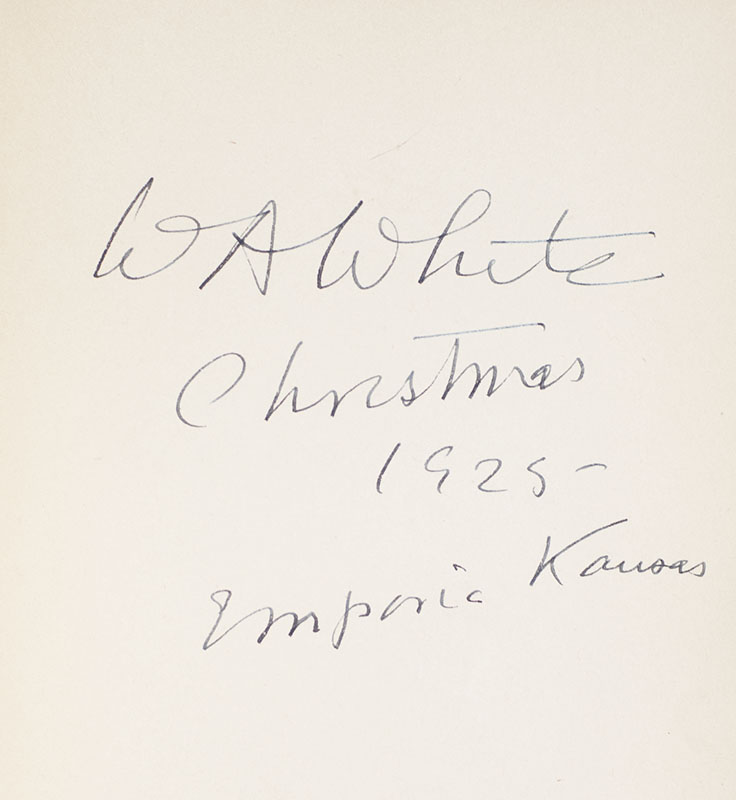 W A White
Christmas
1925-
Emporia Kansas